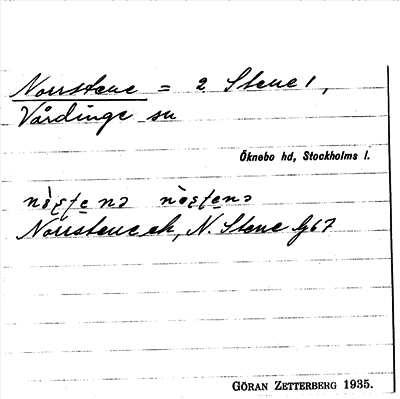 Norrstene = 2 Stene 1,
Vårdinge sn
Öknebo hd, Stockholms l.
Norrstene ek, N. Stene
GÖRAN ZETTERBERG 1935.